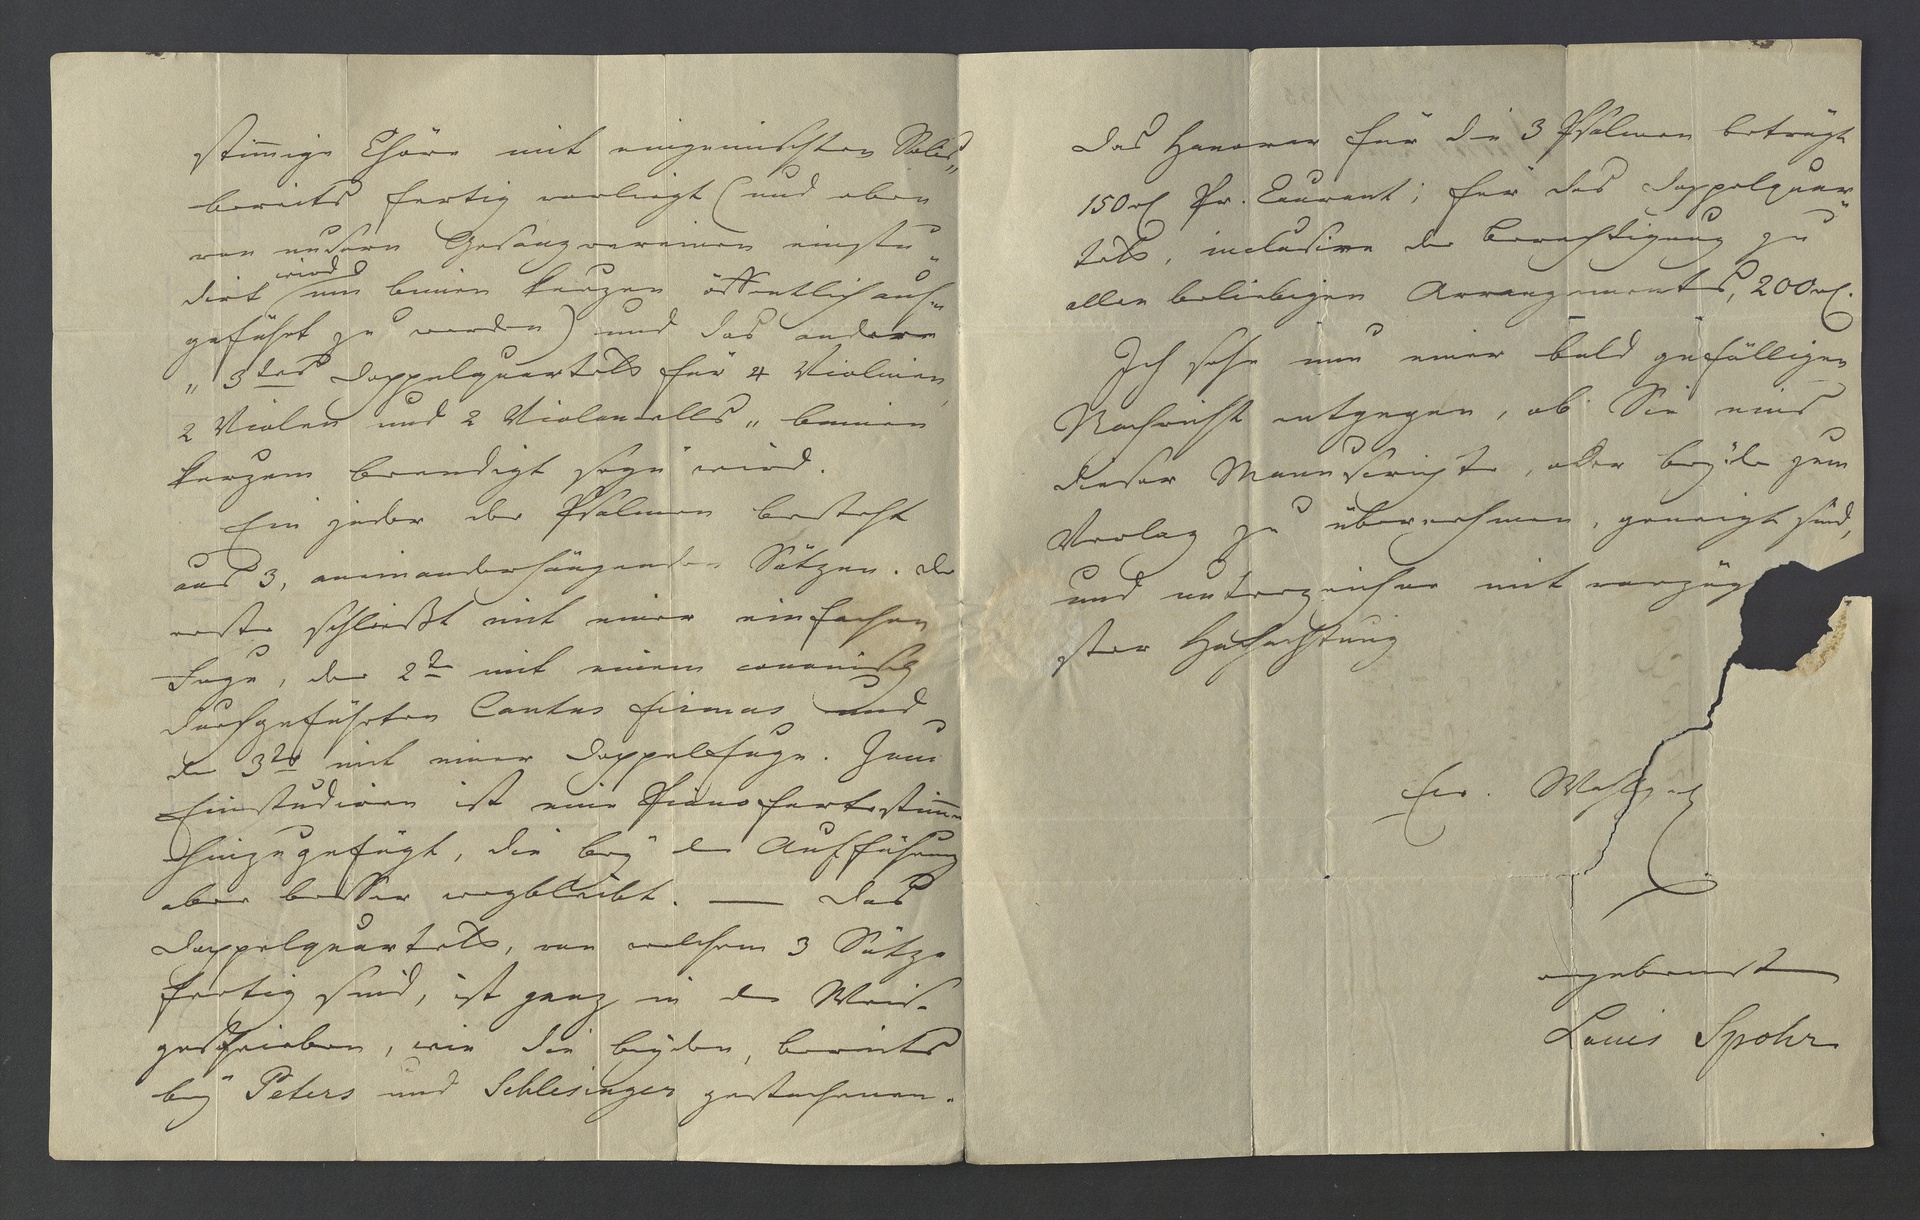 stimmige Chöre mit eingemischten Solis„
bereits fertig vorliegt (und eben
von unsern Gesangvereinen einstu„
dirt wird um binnen kurzem öffentlich auf„
geführt zu werden) und das andere
„3tes Doppelquartett für 4 Violinen,
2 Violen und 2 Violoncells„ binnen
kurzem beendigt seyn wird.
Ein jeder der Psalmen besteht
aus 3, aneinanderhängenden Sätzen. Der
erste schließt mit einer einfachen
Fuge, der 2te mit einem canonisch
durchgeführten Cantus firmus und
der 3te mit einer Doppelfuge. Zum
Einstudiren ist eine Pianofortestimme
hinzugefügt, die bey der Aufführung
aber besser wegbleibt. — Das
Doppelquartett, von welchem 3 Sätze
fertig sind, ist ganz in der Weise
geschrieben, wie die beyden, bereits
bey Peters und Schlesinger gestochenen.
Das Honorar für die 3 Psalmen beträgt
150 rℓ Pr. Courant; für das Doppelquar„
tett, inclusive der Berechtigung zu
allen beliebigen Arrangements, 200 rℓ.
Ich sehe nun einer bald gefälligen
Nachricht entgegen, ob Sie eins
dieser Manuscripte, oder beyde zum
Verlag zu übernehmen, geneigt sind,
und unterzeichne mit vorzüg
ster Hochachtung
Ew. Wohlgeb
ergebenster
Louis Spohr